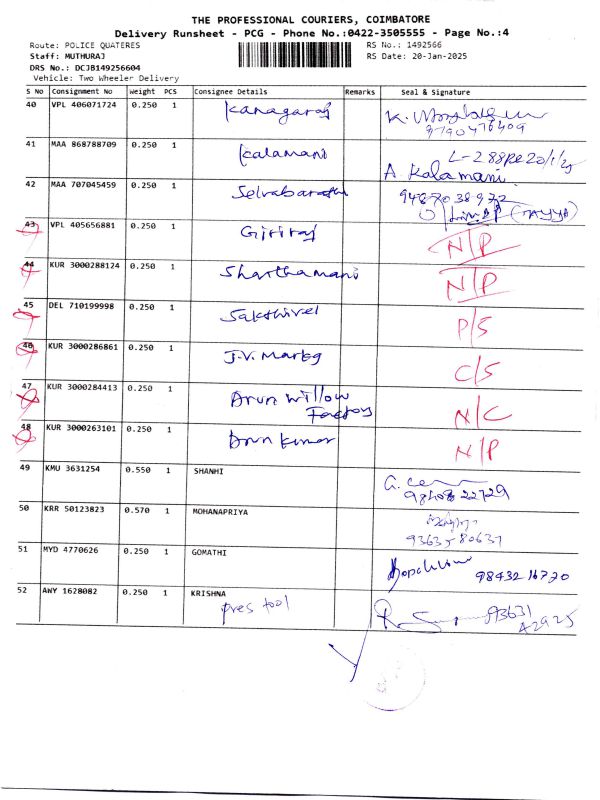 THE PROFESSIONAL COURIERS, COIMBATORE
Delivery Runsheet - PCG - Phone No.:0422-3505555 - Page No.:4
Route: POLICE QUATERES RS No.: 1492566
Staff: MUTHURAJ RS Date: 20-Jan-2025
DRS No.: DCJB149256604
Vehicle: Two Wheeler Delivery
S No Consignment No Weight PCS Consignee Details Remarks Seal & Signature
40 VPL 406071724 0.250 1 Kanagaraj K.
9790476409
41 MAA 868788709 0.250 1 Kalamani L-288
A. Kalamani
42 MAA 707045459 0.250 1 Selvabarathi 9487038972
43 VPL 405656881 0.250 1 Giriraj N/P
44 KUR 3000288124 0.250 1 Sharthamani N/P
45 DEL 710199998 0.250 1 Sakthivel P/S
46 KUR 3000286861 0.250 1 J.V. Marktg C/S
47 KUR 3000284413 0.250 1 Arun Willow N/C
Factory
48 KUR 3000263101 0.250 1 Arun Kumar N/P
49 KMU 3631254 0.550 1 SHANHI
50 KRR 50123823 0.570 1 MOHANAPRIYA
93635 80637
51 MYD 4770626 0.250 1 GOMATHI 98432 16720
52 AWY 1628082 0.250 1 KRISHNA 93631
pres tool 42925